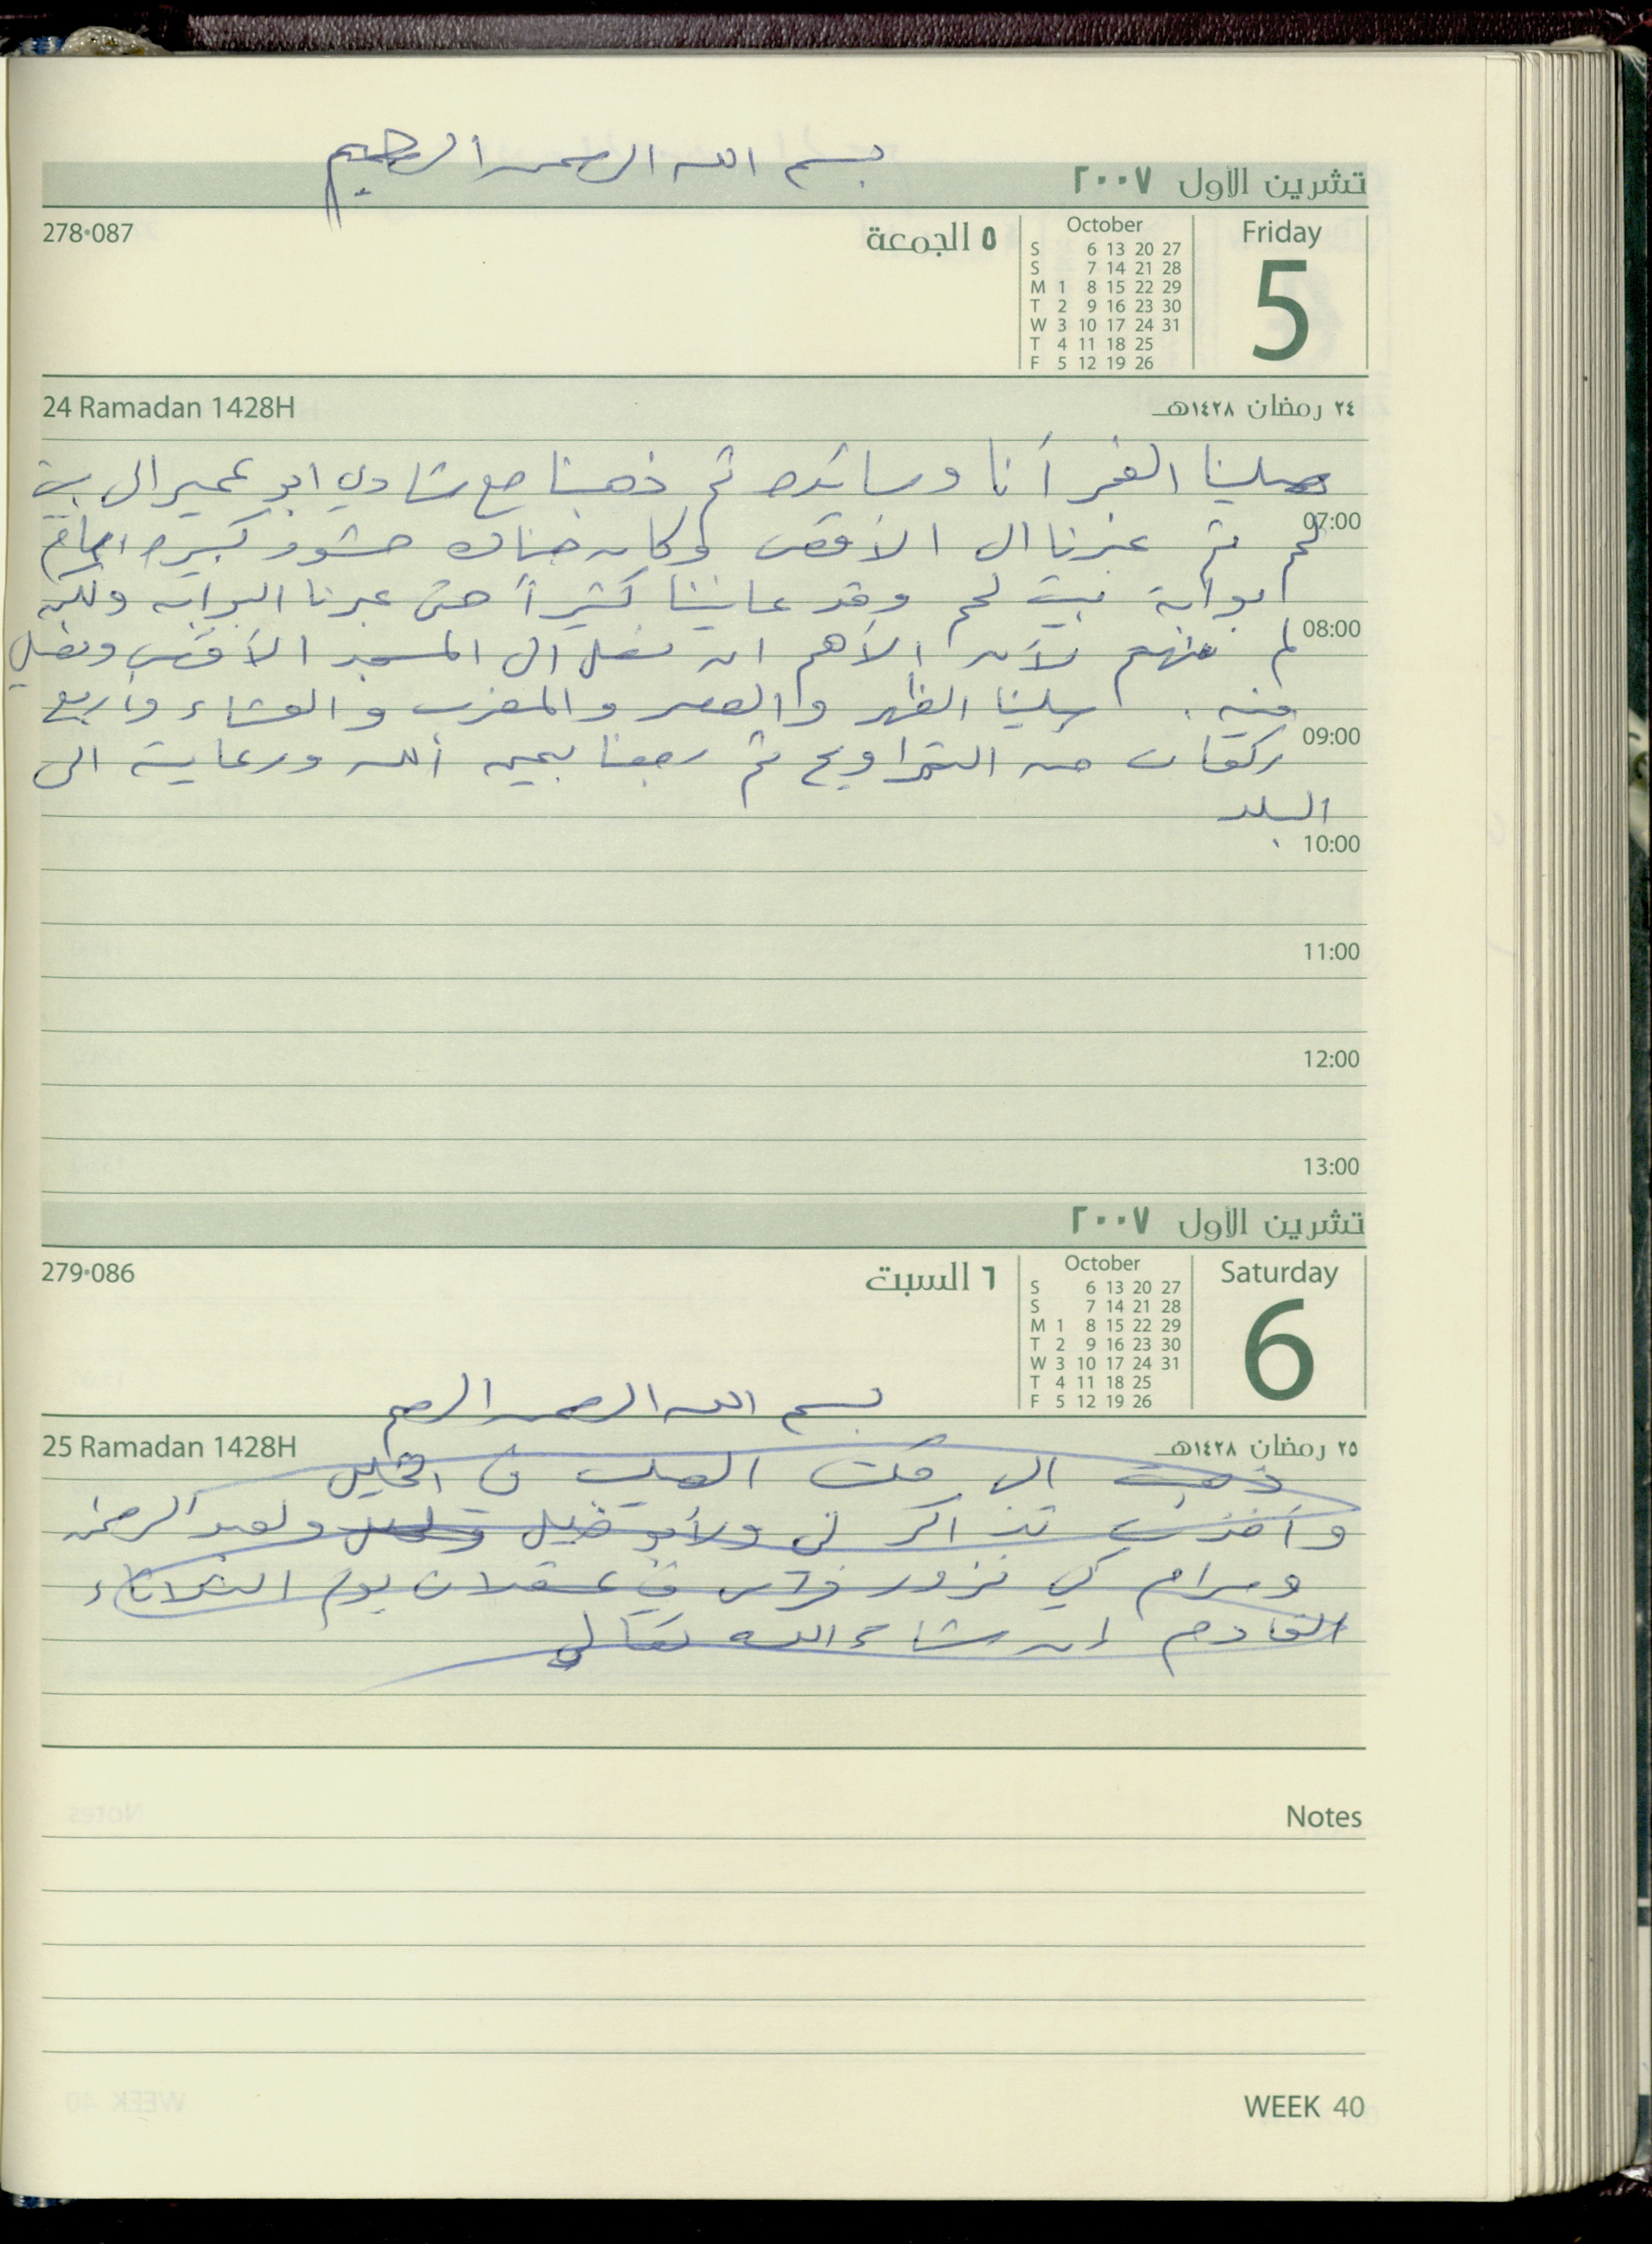 بسم الله الرحمن الرحيم
تشرين الأول ٢٠٠٧
278•087
٥ الجمعة
October
S 6 13 20 27
S 7 14 21 28
M 1 8 15 22 29
T 2 9 16 23 30
W 3 10 17 24 31
T 4 11 18 25
F 5 12 19 26
Friday
5
24 Ramadan 1428H
٢٤ رمضان ١٤٢٨هـ
صلينا الفجر أنا وسائده ثم ذهبنا مع شادي ابو عمير الى بيت
07:00
لحم ثم عبرنا الى الأقصى وكان هناك حشود كبيره امام
ابوابة بيت لحم وقد عانينا كثيراً حتى عبرنا البوابه ولكن
08:00
لم نهتم لأن الأهم ان نصل الى المسجد الأقصى ونصلي
فيه . صلينا الظهر والعصر والمغرب والعشاء وأربع
09:00
ركعات من التراويح ثم رجعنا بحمى الله ورعايته الى
البلد
10:00
11:00
12:00
13:00
تشرين الأول ٢٠٠٧
279•086
٦ السبت
October
S 6 13 20 27
S 7 14 21 28
M 1 8 15 22 29
T 2 9 16 23 30
W 3 10 17 24 31
T 4 11 18 25
F 5 12 19 26
Saturday
6
بسم الله الرحمن الرحيم
25 Ramadan 1428H
٢٥ رمضان ١٤٢٨هـ
ذهبت الى مكتب الصليب في الخليل
وأخذت تذاكر لي ولأبو خليل ولعبد الرحمن
ومرام كي نزور فراس في عسقلان يوم الثلاثاء
القادم إن شاء الله تعالى
Notes
WEEK 40